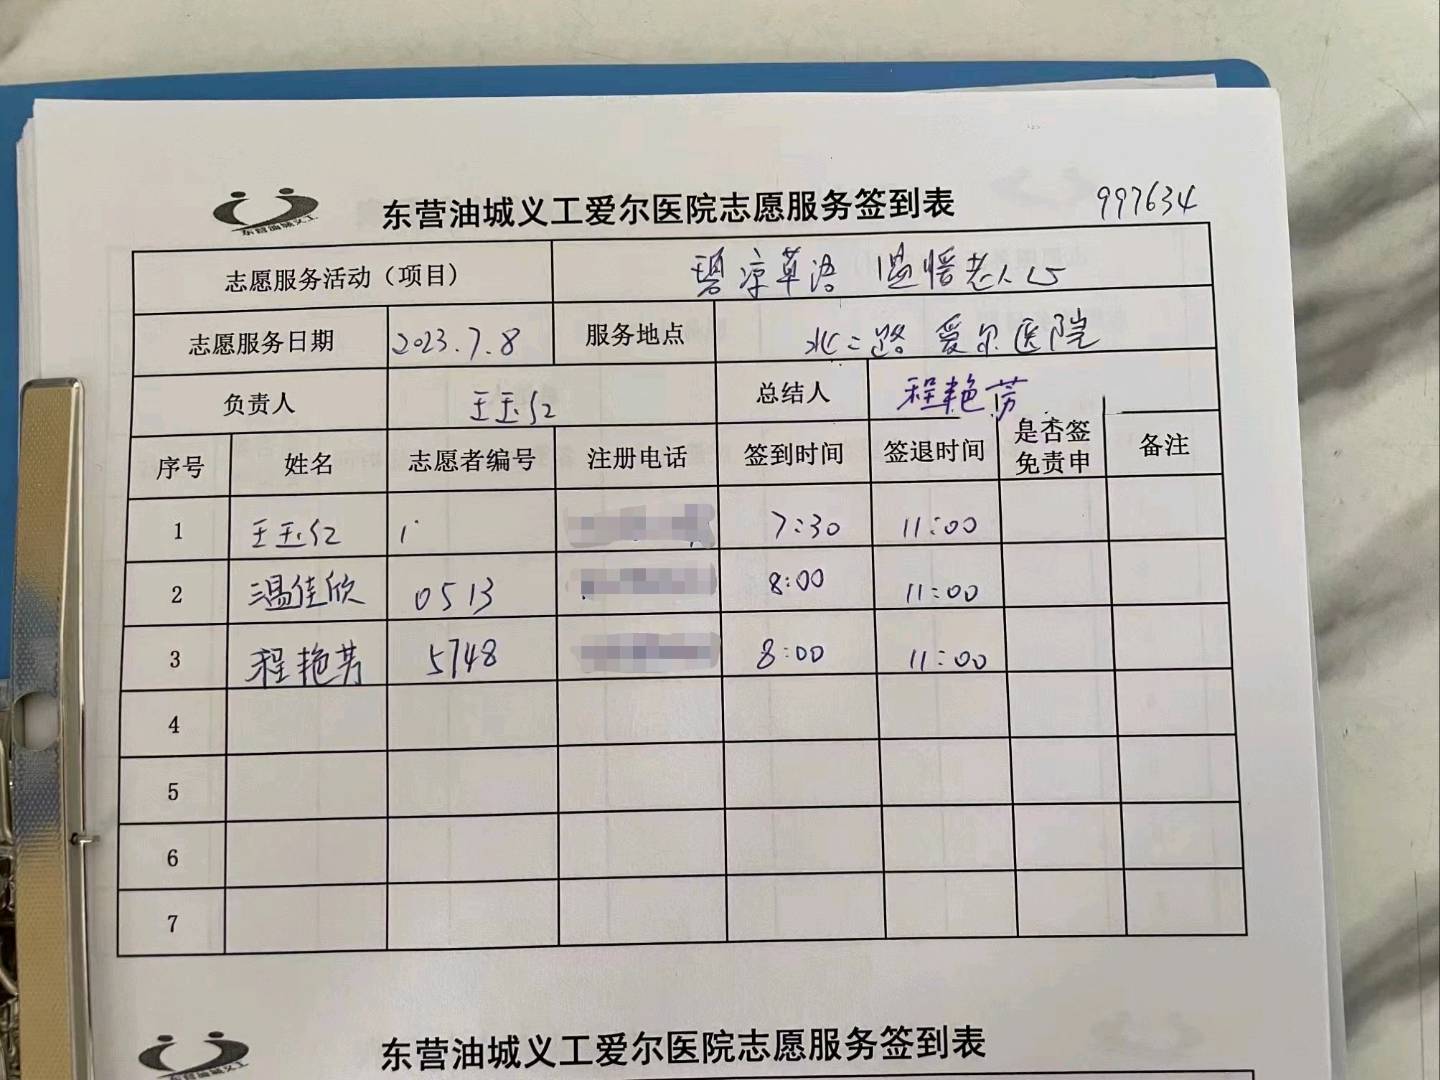 东营油城义工
东营油城义工爱尔医院志愿服务签到表
997634
志愿服务活动（项目） 碧凉草语 温暖老人心
志愿服务日期 2023.7.8 服务地点 北二路 爱尔医院
负责人 王玉红 总结人 程艳芳
序号 姓名 志愿者编号 注册电话 签到时间 签退时间 是否签免责申 备注
1 王玉红 7:30 11:00
2 温佳欣 0513 8:00 11:00
3 程艳芳 5748 8:00 11:00
4
5
6
7
东营油城义工
东营油城义工爱尔医院志愿服务签到表